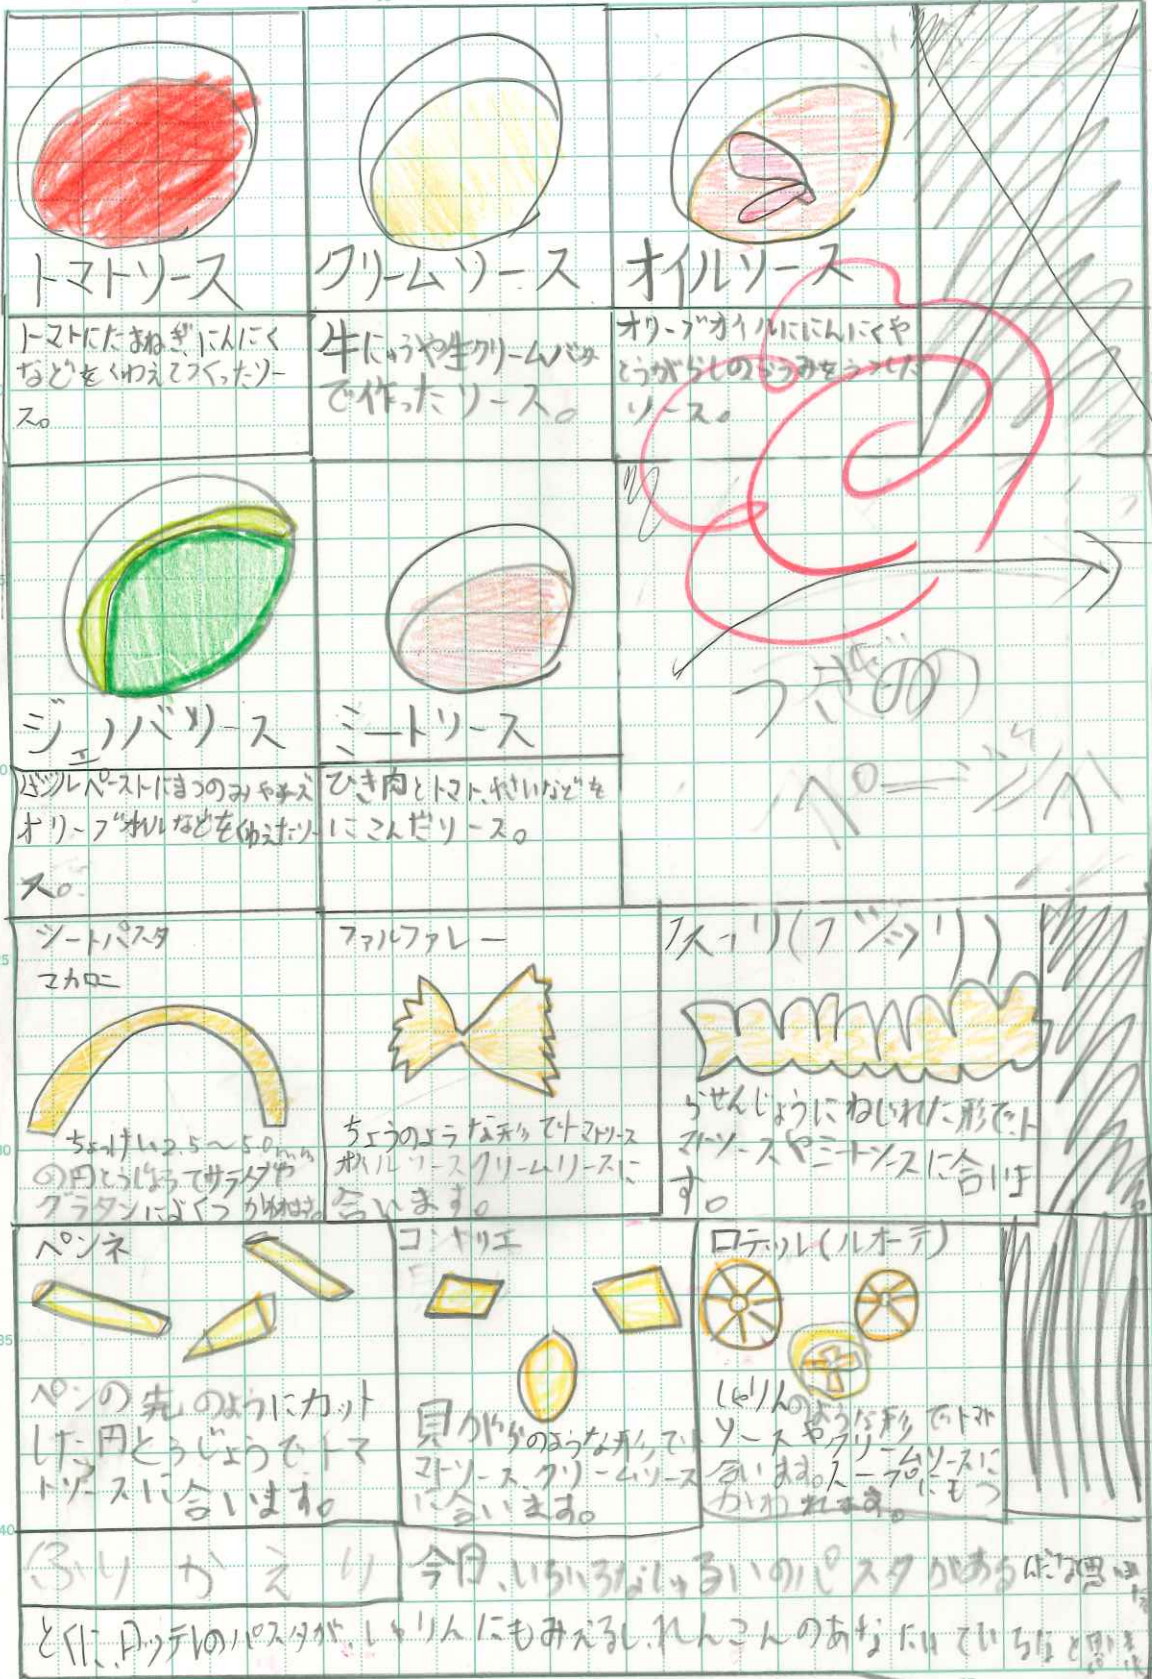 トマトソース
クリームソース
オイルソース
トマトにたまねぎ、にんにく
などをくわえてつくったソー
ス。
牛にゅうや生クリームバター
で作ったソース。
オリーブオイルににんにくや
とうがらしのふうみをうつした
ソース。
ジェノバソース
ミートソース
バジルペーストにまつのみやチーズ
オリーブオイルなどをくわえたソー
ス。
ひき肉とトマト、やさいなどを
にこんだソース。
つぎの
ページへ
ショートパスタ
マカロニ
ちょっけい2.5〜5.0mm
の円とうじょうでサラダや
グラタンによくつかわれます。
ファルファレー
ちょうのような形でトマトソース
オイルソースクリームソースに
合います。
(フジッリ)
らせんじょうにねじれた形でト
マトソースやミートソースに合いま
す。
ペンネ
ペンの先のようにカット
した円とうじょうでトマ
トソースに合います。
コンキリエ
貝がらのような形でト
マトソース、クリームソース
に合います。
ロテッル(ルオーテ)
しゃりんのような形でトマト
ソースやクリームソースに
合います。スープにもつ
かわれます。
ふりかえり
今日、いろいろなしゅるいのパスタがあるんだな思いました
とくに、ロッテルのパスタが、しゃりんにもみえるし、れんこんのあなたいているなと思いました